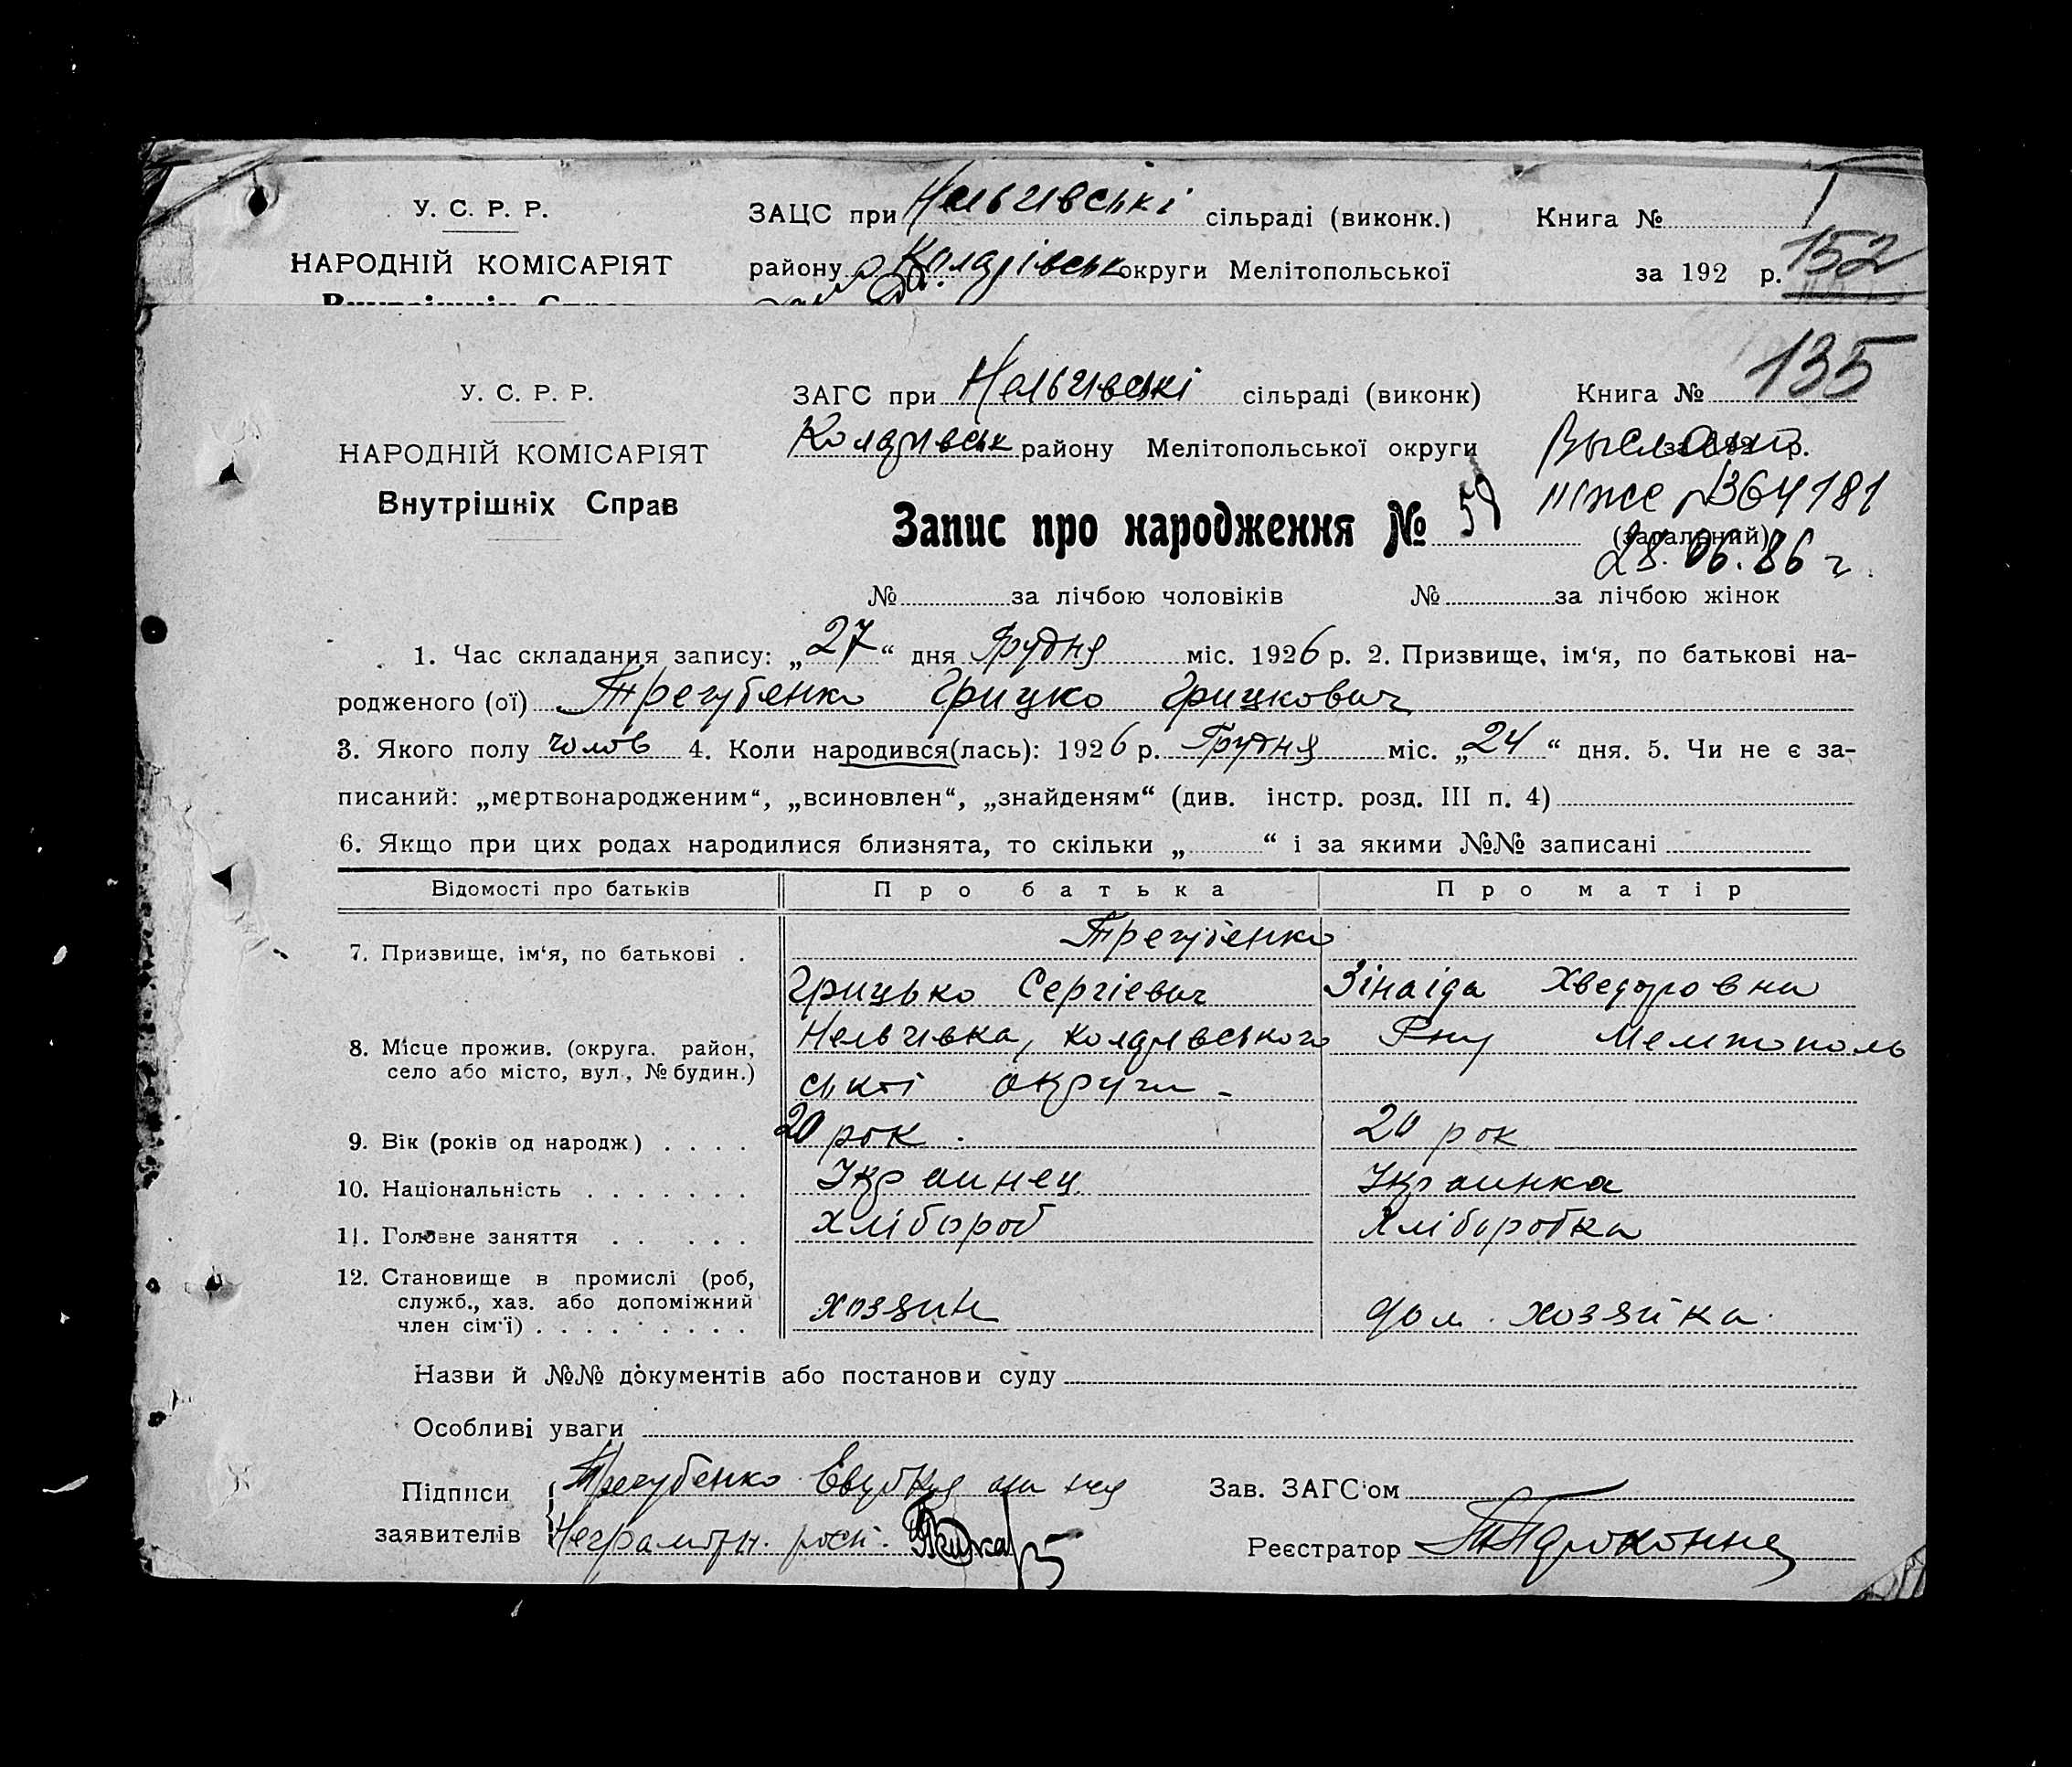 У. С. Р. Р.
ЗАЦС при Нельгівські сільраді (виконк.)
Книга № 1
НАРОДНІЙ КОМІСАРІЯТ
району Колдрівськ округи Мелітопольської
за 192 р. 152
Внутрішніх Справ
135
У. С. Р. Р.
ЗАГС при Нельгивські сільраді (виконк)
Книга №
НАРОДНІЙ КОМІСАРІЯТ
Колдривськ району Мелітопольської округи
за 192 р.
Выслано
Внутрішніх Справ
364181
Запис про народження № 59 (загальний)
28.06.86 г.
№ за лічбою чоловіків № за лічбою жінок
1. Час складання запису: „27“ дня Грудня міс. 1926 р. 2. Призвище, ім‘я, по батькові на-
родженого (ої) Трегубенко Грицко Грицкович
3. Якого полу чолов 4. Коли народився(лась): 1926 р. Грудня міс. „24“ дня. 5. Чи не є за-
писаний: „мертвонародженим“, „всиновлен“, „знайденям“ (див. інстр. розд. III п. 4)
6. Якщо при цих родах народилися близнята, то скільки „ “ і за якими №№ записані
Відомості про батьків Про батька Про матір
Трегубенко
7. Призвище, ім‘я, по батькові .
Грицько Сергіевич Зінаіда Хведоровна
8. Місце прожив. (округа. район, село або місто, вул., № будин.)
Нельгивка, Колдривського Р-ну Мелитополь
ськоі округи -
9. Вік (років од народж) . . . . 20 рок. 20 рок
10. Національність . . . . . . . Украинец Украинка
11. Головне заняття . . . . . . хлібороб хліборобка
12. Становище в промислі (роб,
служб., хаз. або допоміжний
член сім‘ї) . . . . . . . . . хозяин дом. хозяйка.
Назви й №№ документів або постанови суду
Особливі уваги
Підписи
заявителів
Трегубенко
Неграмотн.
Зав. ЗАГС‘ом
Реєстратор